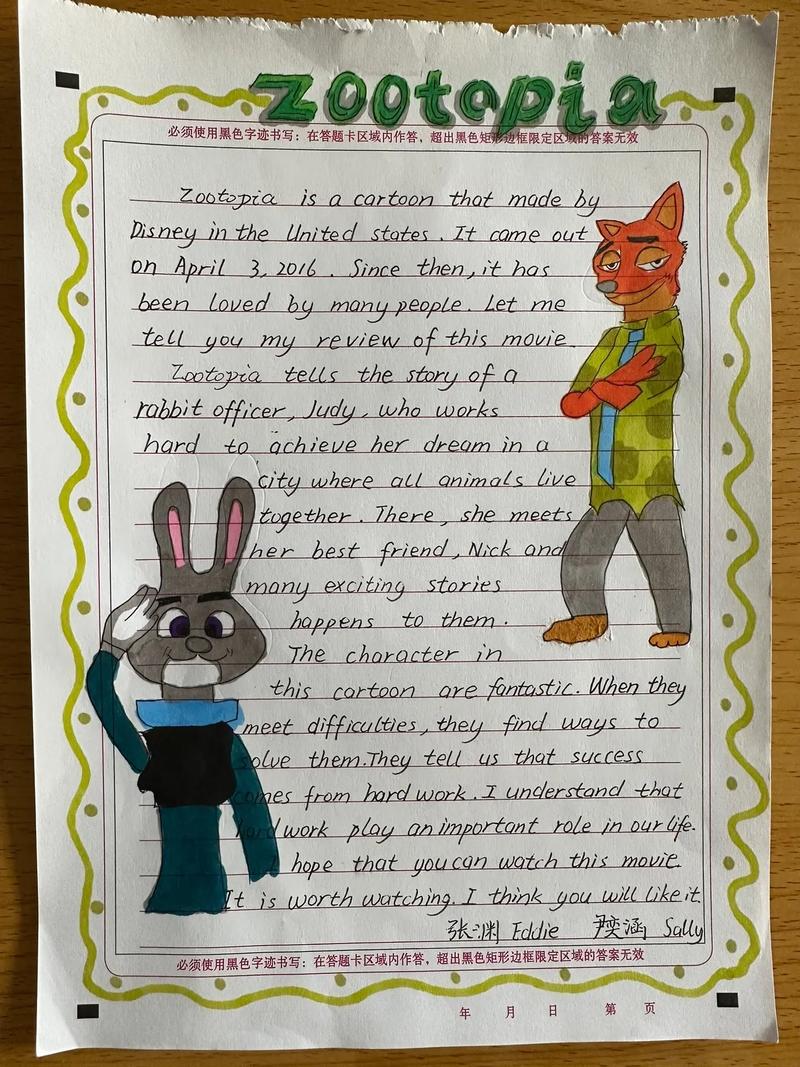 Zootopia
必须使用黑色字迹书写：在答题卡区域内作答，超出黑色矩形边框限定区域的答案无效
Zootopia is a cartoon that made by
Disney in the United states. It came out
on April 3, 2016. Since then, it has
been loved by many people. Let me
tell you my review of this movie.
Zootopia tells the story of a
rabbit officer, Judy, who works
hard to achieve her dream in a
city where all animals live
together. There, she meets
her best friend, Nick and
many exciting stories
happens to them.
The character in
this cartoon are fantastic. When they
meet difficulties, they find ways to
solve them. They tell us that success
comes from hard work. I understand that
hard work play an important role in our life.
I hope that you can watch this movie.
It is worth watching. I think you will like it.
张渊 Eddie 尹奕涵 Sally
必须使用黑色字迹书写：在答题卡区域内作答，超出黑色矩形边框限定区域的答案无效
年 月 日 第 页